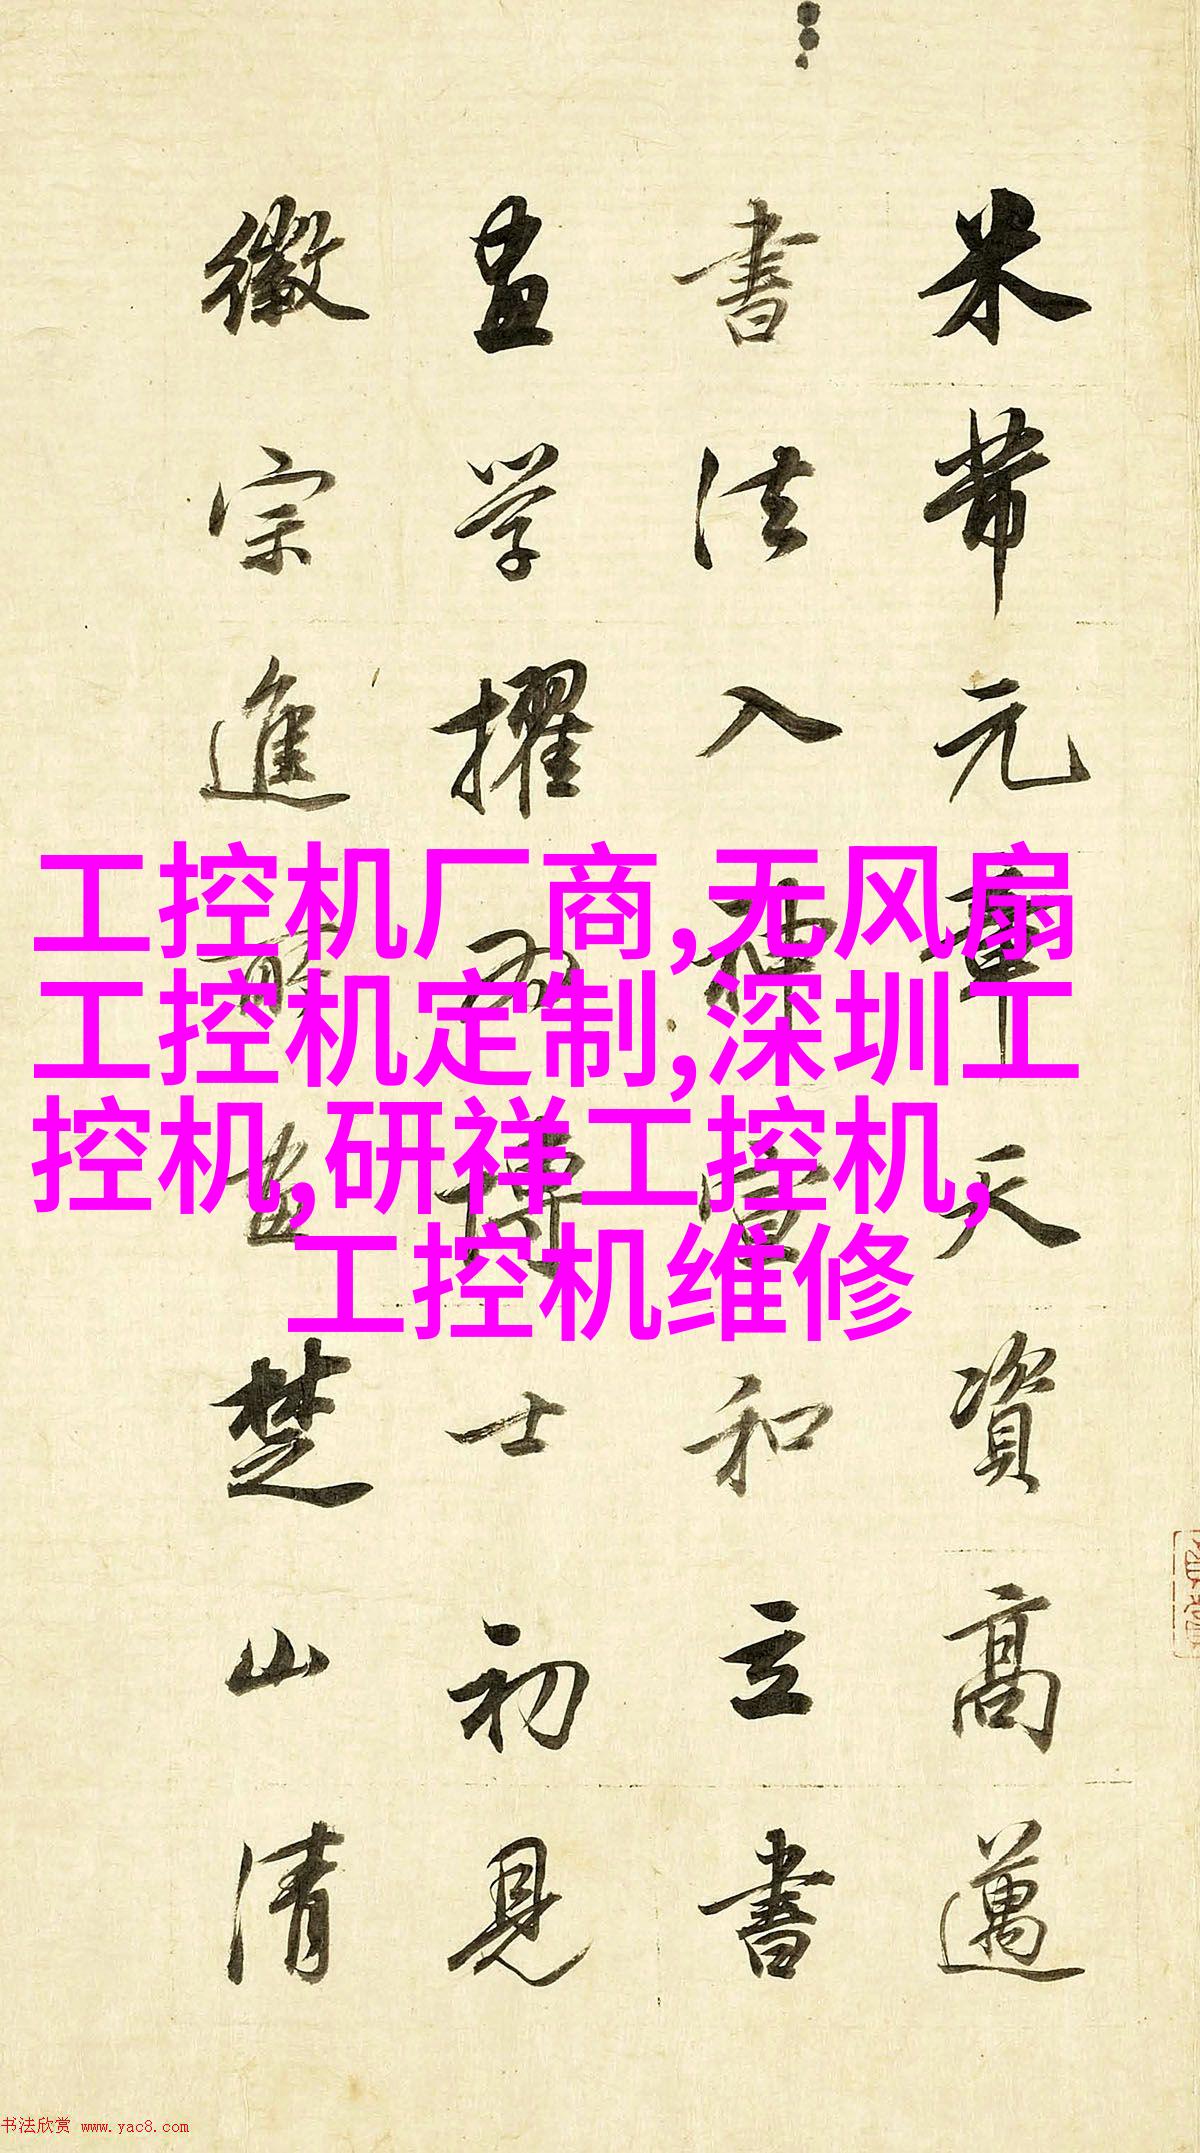 米芾元章天資高邁
書法入神宣和立書
畫学擢為博士初見
徽宗進所畫楚山清
工控机厂商,无风扇
工控机定制,深圳工
控机,研祥工控机,
工控机维修
书法欣赏 www.yac8.com